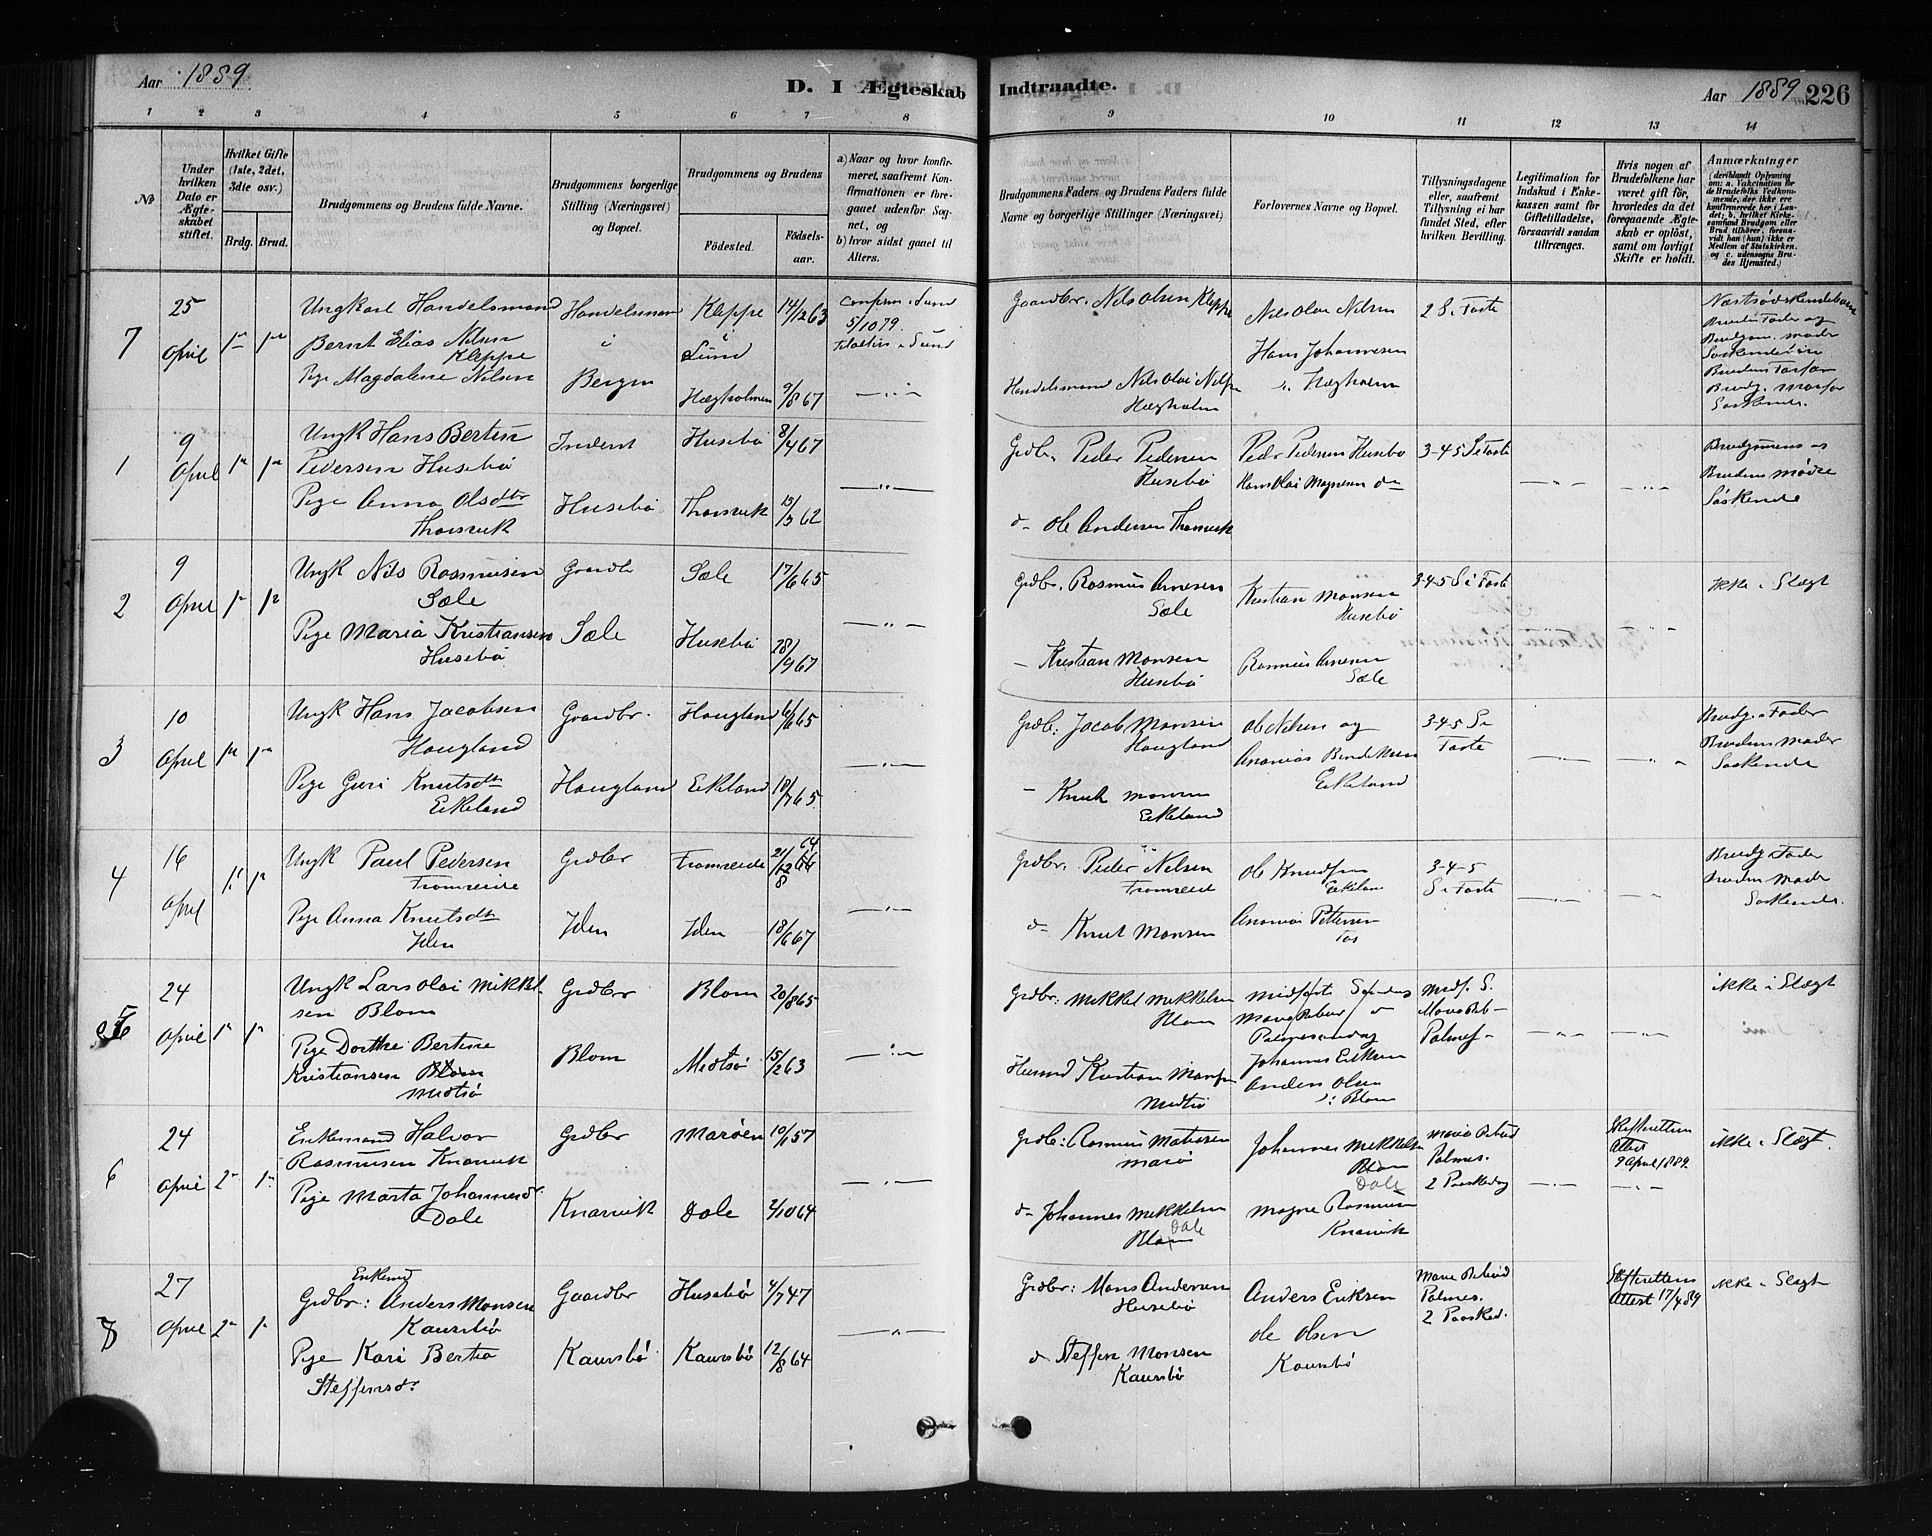 Aar 1889
D. I Ægteskab Indtraadte.
Aar 1889 226
1 2 3 4 5 6 7 8 9 10 11 12 13 14
No
Under hvilken Dato er Ægteskabet stiftet.
Hvilket Gifte (1ste, 2det, 3die osv.)
Brdg. Brud.
Brudgommens og Brudens fulde Navne.
Brudgommens borgerlige Stilling (Næringsvei) og Bopæl.
Brudgommens og Brudens
Födested. Födselsaar.
a) Naar og hvor konfirmeret, saafremt Konfirmationen er foregaaet udenfor Sognet, og
b) hvor sidst gaaet til Alters.
Brudgommens Faders og Brudens Faders fulde Navne og borgerlige Stillinger (Næringsvei)
Forlovernes Navne og Bopæl.
Tillysningsdagene eller, saafremt Tillysning ei har fundet Sted, efter hvilken Bevilling.
Legitimation for Indskud i Enkekassen samt for Giftetilladelse, forsaavidt saadan tiltrænges.
Hvis nogen af Brudefolkene har været gift för, hvorledes da det foregaaende Ægteskab er oplöst, samt om lovligt Skifte er holdt.
Anmærkninger
7
25 April
Ungkarl Handelsmand
Bernt Elias Nilsen
Kleppe
Pige Magdalene Nilsen
Handelsmand
i
Bergen
Kleppe
i Sund
Hægholmen
14/12 63
9/8 67
Confirm. i Sund
5/10 79.
Gaardbr. Nils Olsen Kleppe
Handelsmand Nils Olai Nilsen
Hægholm
Nils Olai Nilsen
Hans Johannesen
Hægholm
2 S. i Faste
Næstsødskendebørn
Brudens Fader og
Brudgom. moder
Brudens Farfar
Brudg. morfar
Søskende.
1
9 April
Ungk Hans Bertin
Pedersen Husebö
Pige Anna Olsdtr
Thorsvik
Inderst
Husebö
Husebö
Thorsvik
8/4 67
13/3 62
Grdbr. Peder Pedersen
Husebö
d- Ole Andersen Thorsvik
Peder Pedersen Husebö
Hans Olai Magnesen do
3-4-5 S i Faste
Brudgommens og
Brudens mödre
Söskende
2
9 April
Ungk Nils Rasmusen
Sæle
Pige Maria Kristiansen
Husebö
Gaardbr
Sæle
Sæle
Husebö
17/6 65
28/4 67
Grdbr. Rasmus Arnesen
Sæle
- Kristian Monsen
Husebö
Kristian Monsen
Husebö
Rasmus Arnesen
Sæle
3-4-5 S i Faste
ikke i Slægt
3
10 April
Ungk Hans Jacobsen
Hougland
Pige Guri Knutsdtr
Eikeland
Gaardbr.
Hougland
Hougland
Eikeland
6/6 65
18/7 65
Grdbr: Jacob Monsen
Hougland
- Knut Monsen
Eikeland
Ole Nilsen og
Ananias Bendiksen
Eikeland
3-4-5 S i
Faste
Brudg. Fader
Brudens Moder
Söskende
4
16 April
Ungk Paul Pedersen
Framreide
Pige Anna Knutsdtr
Iden
Grdbr
Iden
Framreide
Iden
21/12 66 64
8
18/6 67
Grdbr: Peder Nilsen
Framreide
d- Knut Monsen
Ole Knudsen
Eikelan
Ananias Pettersen
3-4-5
S i Faste
Brudg. Fader
Bruden Moder
Söskende.
5
24 April
Ungk Lars Olai Mikkel-
sen Blom
Pige Dorthe Bertine
Kristiansen Blom
Midtsö
Grdbr
Blom
Blom
Midtsö
20/8 65
15/2 63
Grdbr: Mikkel Mikkelsen
Blom
Husmd Kristian Monsen
Midtsö
Midfaste Söndag
Palmesöndag
Johannes Eriksen
Anders Olsen
Blom
Midf. S.
Maria Beb-
Palmes-
ikke i Slægt
6
24 April
Enkemand Halvor
Rasmusen Knarvik
Pige Marta Johannesdr
Dale
Grdbr
Knarvik
Maröen
Dale
10/1 57
2/10 64
Grdbr: Rasmus Matiasen
Marö
d- Johannes Mikkelsen
Dale
Blom
Johannes Mikkelsen
Blom
Dale
Magne Rasmusen
Knarvik
Maria Bebud
Palmes.
2 Paaskedag
Skifterettens
Attest
9 April 1889
ikke i Slægt.
8
27 April
Enkemd
Grdbr: Anders Monsen
Kaursbö
Pige Kari Bertea
Steffensdr.
Gaardbr
Kaursbö
Husebö
Kaursbö
4/7 47
12/8 64
Grdbr: Mons Andersen
Husebö
d Steffen Monsen
Kaursbö
Anders Eriksen
Ole Olsen
Kaursbö
Marie Bebud
Palmes.
2 Paasked.
Skifterettens
Attest 17/4 89
ikke i Slægt